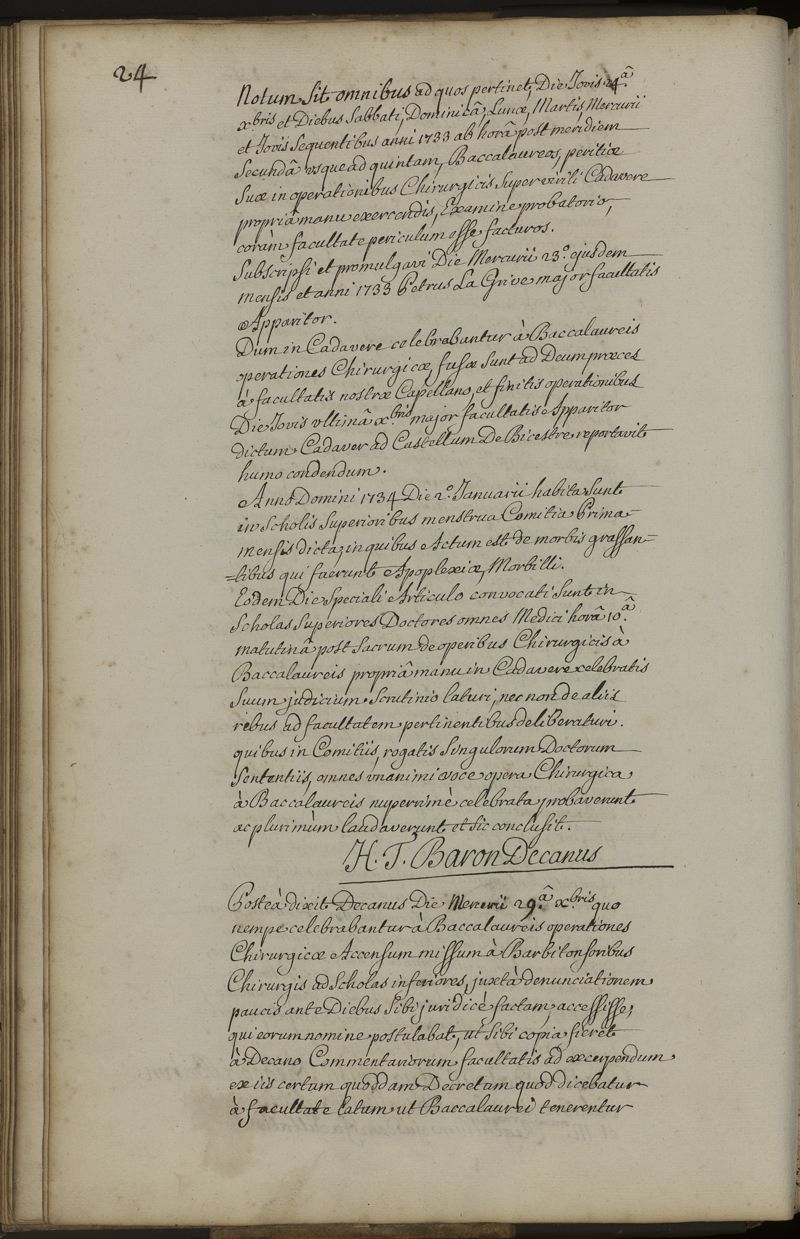 24
Notum sit omnibus ad quos pertinet, Die Jovis 24.â
xbris et Diebus Sabbati, Dominicâ, Lunæ, Martis, Mercurii
et Jovis Sequentibus anni 1733 ab horâ post meridiem
Secundâ usque ad quintam, Baccalaureos, peritiæ
Suæ in operationibus Chirurgicis Super virili Cadavere
propriâ manu exercendis, Examine probatorio,
coràm facultate periculum esse facturos.
Subscripsi et promulgavi Die Mercurii 23.º ejusdem
mensis et anni 1733 Petrus La Grive major facultatis
Apparitor.
Dum in Cadavere celebrabantur à Baccalaureis
operationes Chirurgicæ, fusæ Sunt ad Deum præces
à facultatis nostræ Capellano, et finitis operationibus
Die Jovis ultimâ x.bris major facultatis Apparitor
dictum Cadaver ad Castellum De Bicestre reportavit
humo condendum.
Anno Domini 1734 Die 2.º Januarii habita Sunt
in Scholis Superioribus menstrua Comitia Prima-
mensis dicta, in quibus Actum est de morbis grassan=
=tibus qui fuerunt Apoplexiæ, Morbilli.
Eodem Die Speciali Articulo convocati Sunt in
Scholas Superiores Doctores omnes Medici horâ 10.â
matutinâ post Sacrum de operibus Chirurgicis à
Baccalaureis propriâ manu in Cadavere celebratis
Suum judicium Scrutinio laturi, nec non de aliis
rebus ad facultatem pertinentibus deliberaturi.
quibus in Comitiis, rogatis Singulorum Doctorum
Sententiis, omnes unanimi voce opera Chirurgica
à Baccalaureis nuperrimè celebrata probaverunt
ac plurimùm laudaverunt et sic conclusit.
H. T. Baron Decanus
Posteà dixit Decanus Die Mercurii 29.â x.bris quo
nempe celebrabantur à Baccalaureis operationes
Chirurgicæ Accensum missum à Barbitonsoribus
Chirurgis ad Scholas inferiores, juxtà denunciationem
paucis ante Diebus Sibi juridicè factam, accessisse,
qui eorum nomine postulabat, ut Sibi copia fieret
à Decano Commentariorum facultatis ad excerpendum
ex iis certum quoddam Decretum quod dicebatur
à facultate latum ut Baccalaurei tenerentur